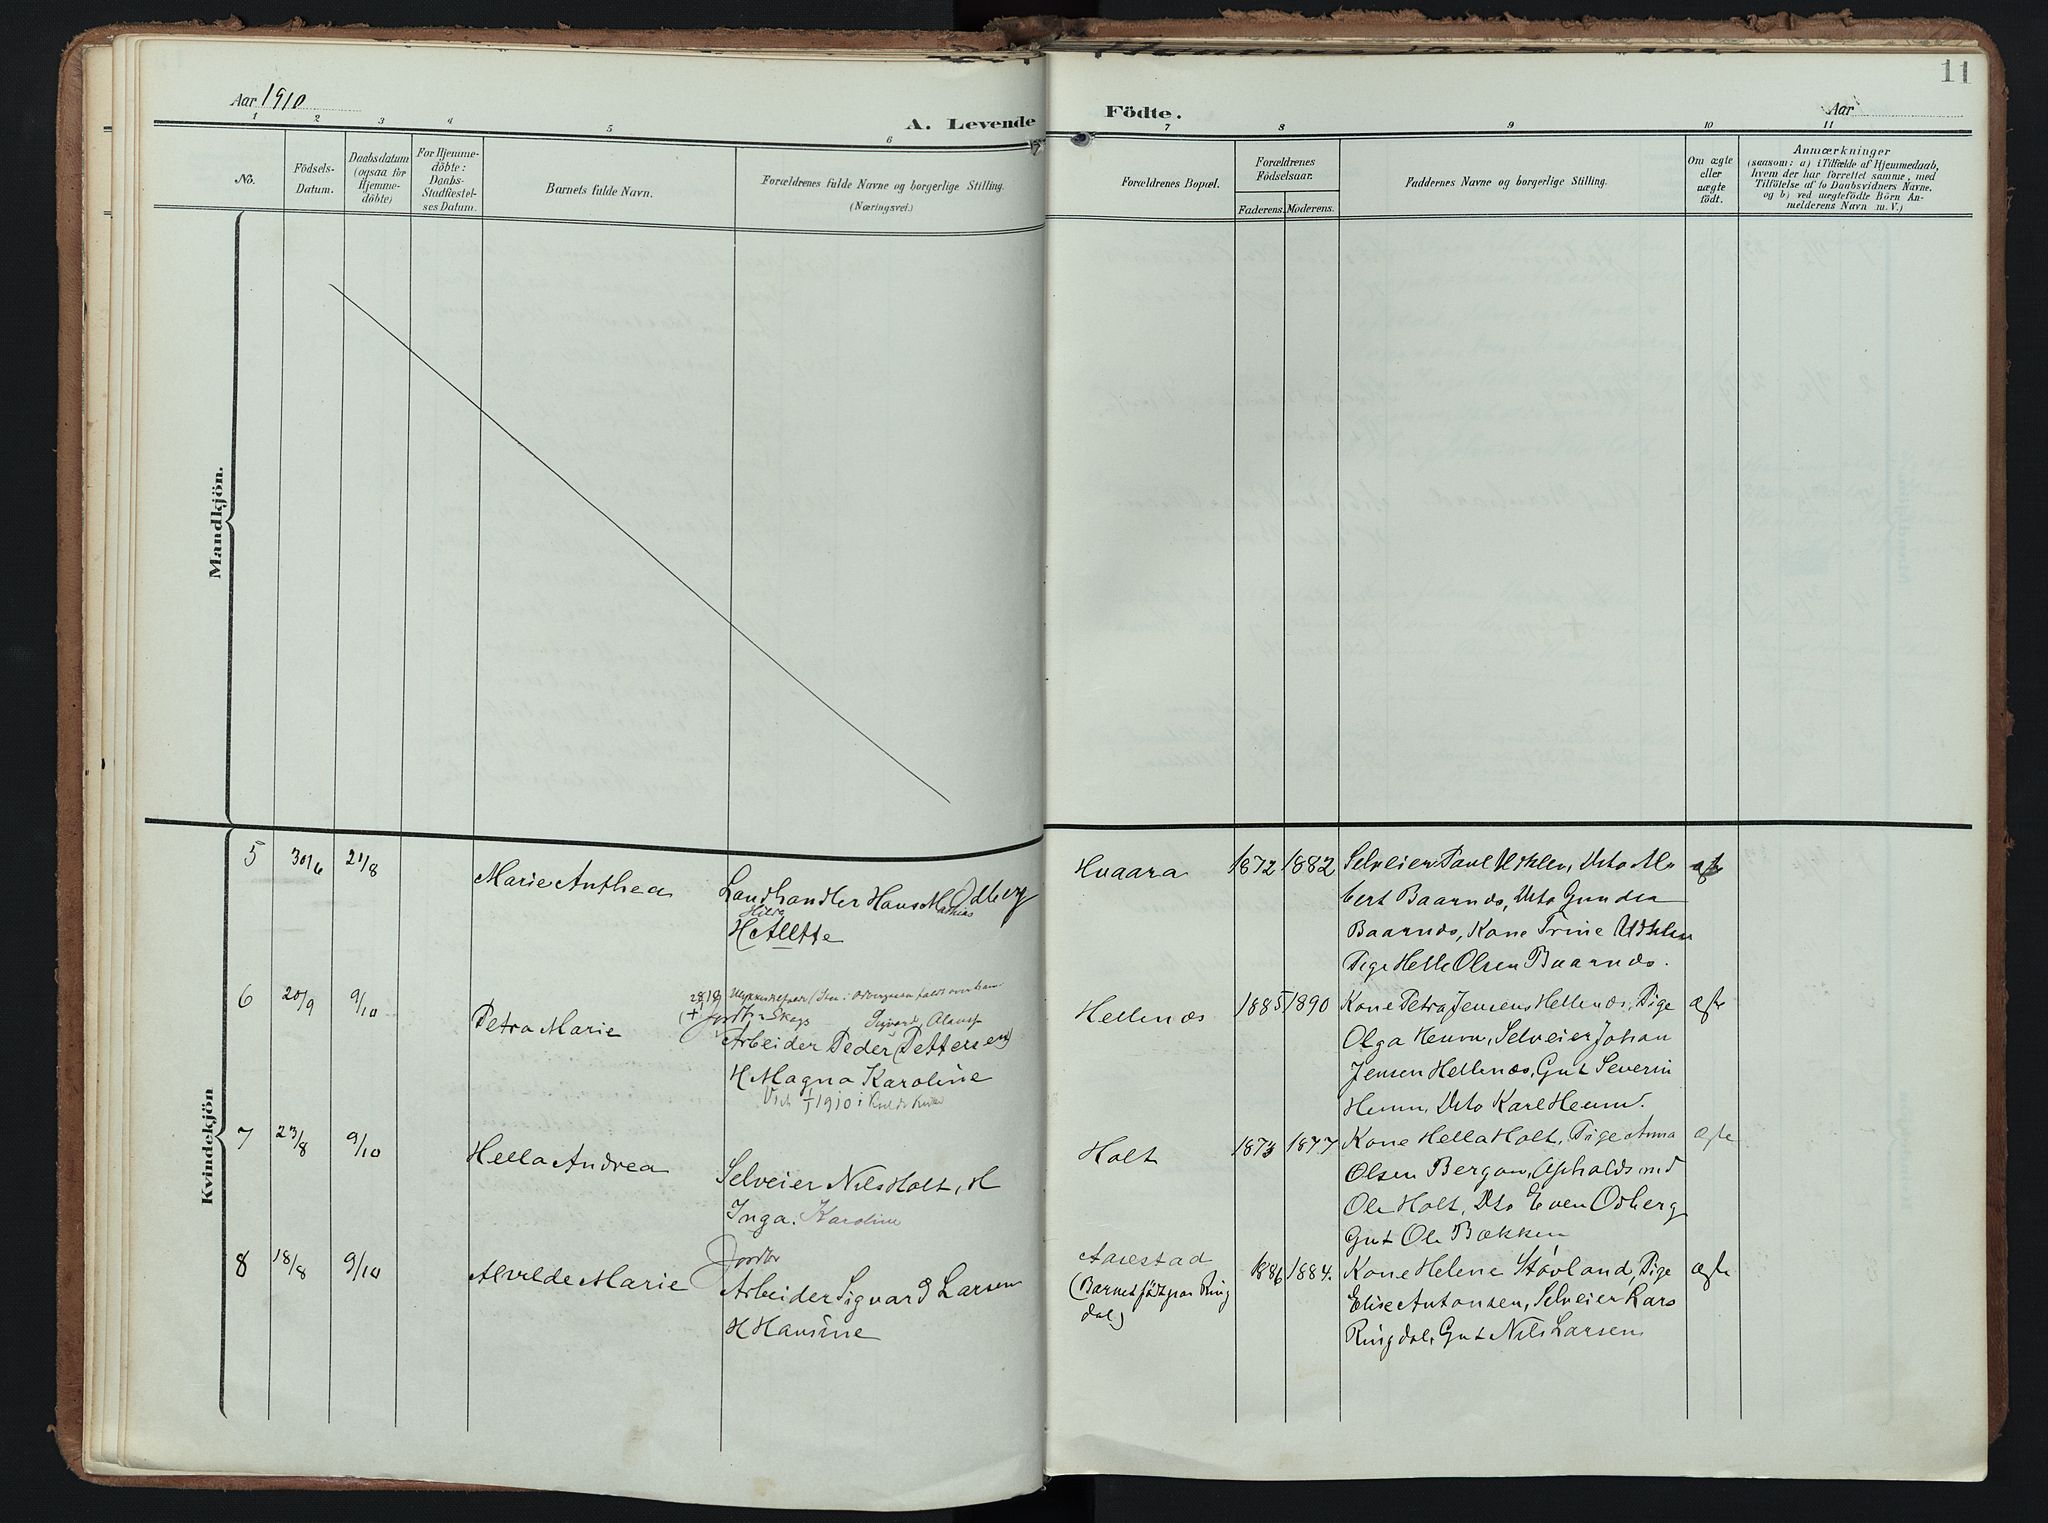 11
Aar 1910
A. Levende Födte.
Aar
1 2 3 4 5 6 7 8 9 10 11
No.
Födsels-Datum.
Daabsdatum (ogsaa for Hjemmedöbte)
For Hjemmedöbte: Daabs-Stadfæstelses Datum.
Barnets fulde Navn.
Forældrenes fulde Navne og borgerlige Stilling.
(Næringsvei.)
Forældrenes Bopæl.
Forældrenes Födselsaar.
Faderens. Moderens.
Faddernes Navne og borgerlige Stilling.
Om ægte eller uægte födt.
Anmærkninger
(saasom: a) i Tilfælde af Hjemmedaab,
hvem der har forrettet samme, med
Tilföielse af to Daabsvidners Navne.
og b) ved uægtefödte Börn An-
melderens Navn m. V.)
Mandkjön.
Kvindekjön
5 30/6 21/8
Marie Anthea
Landhandler Hans Mathias Odberg
Hilda
H Alette
Hvaara
1872 1882
Selveier Paul Uthlen, Dito
Baarnæs, Dito Gundea
Baarnæs, Kone Trine Uthlen
Pige Helle Olsen Baarnæs.
6 20/9 9/10
Petra Marie
Sigvard
Arbeider Peder (Pettersen)
H Magna Karoline
† 1910 i
Hellenæs
1885 1890
Kone Petra Jensen Hellenæs, Pige
Olga Heum, Selveier Johan
Jensen Hellenæs, Gut Severin
Heum, Dito Karl Heum.
ægte
7 23/8 9/10
Hella Andrea
Selveier Nils Holt, H
Inga. Karoline
Holt
1873 1877
Kone Hella Holt, Pige Anna
Olsen Bergan,
Ole Holt, Dto Even Odberg
Gut Ole Bækken
ægte
8 18/8 9/10
Alvilde Marie
Jordbr
Arbeider Sigvard Larsen
H Hansine
Aarestad
(Barnet födt paa Ring
dal)
1886 1884.
Kone Helene Stövland, Pige
Elise Antonsen, Selveier Lars
Ringdal, Gut Nils Larsen
ægte